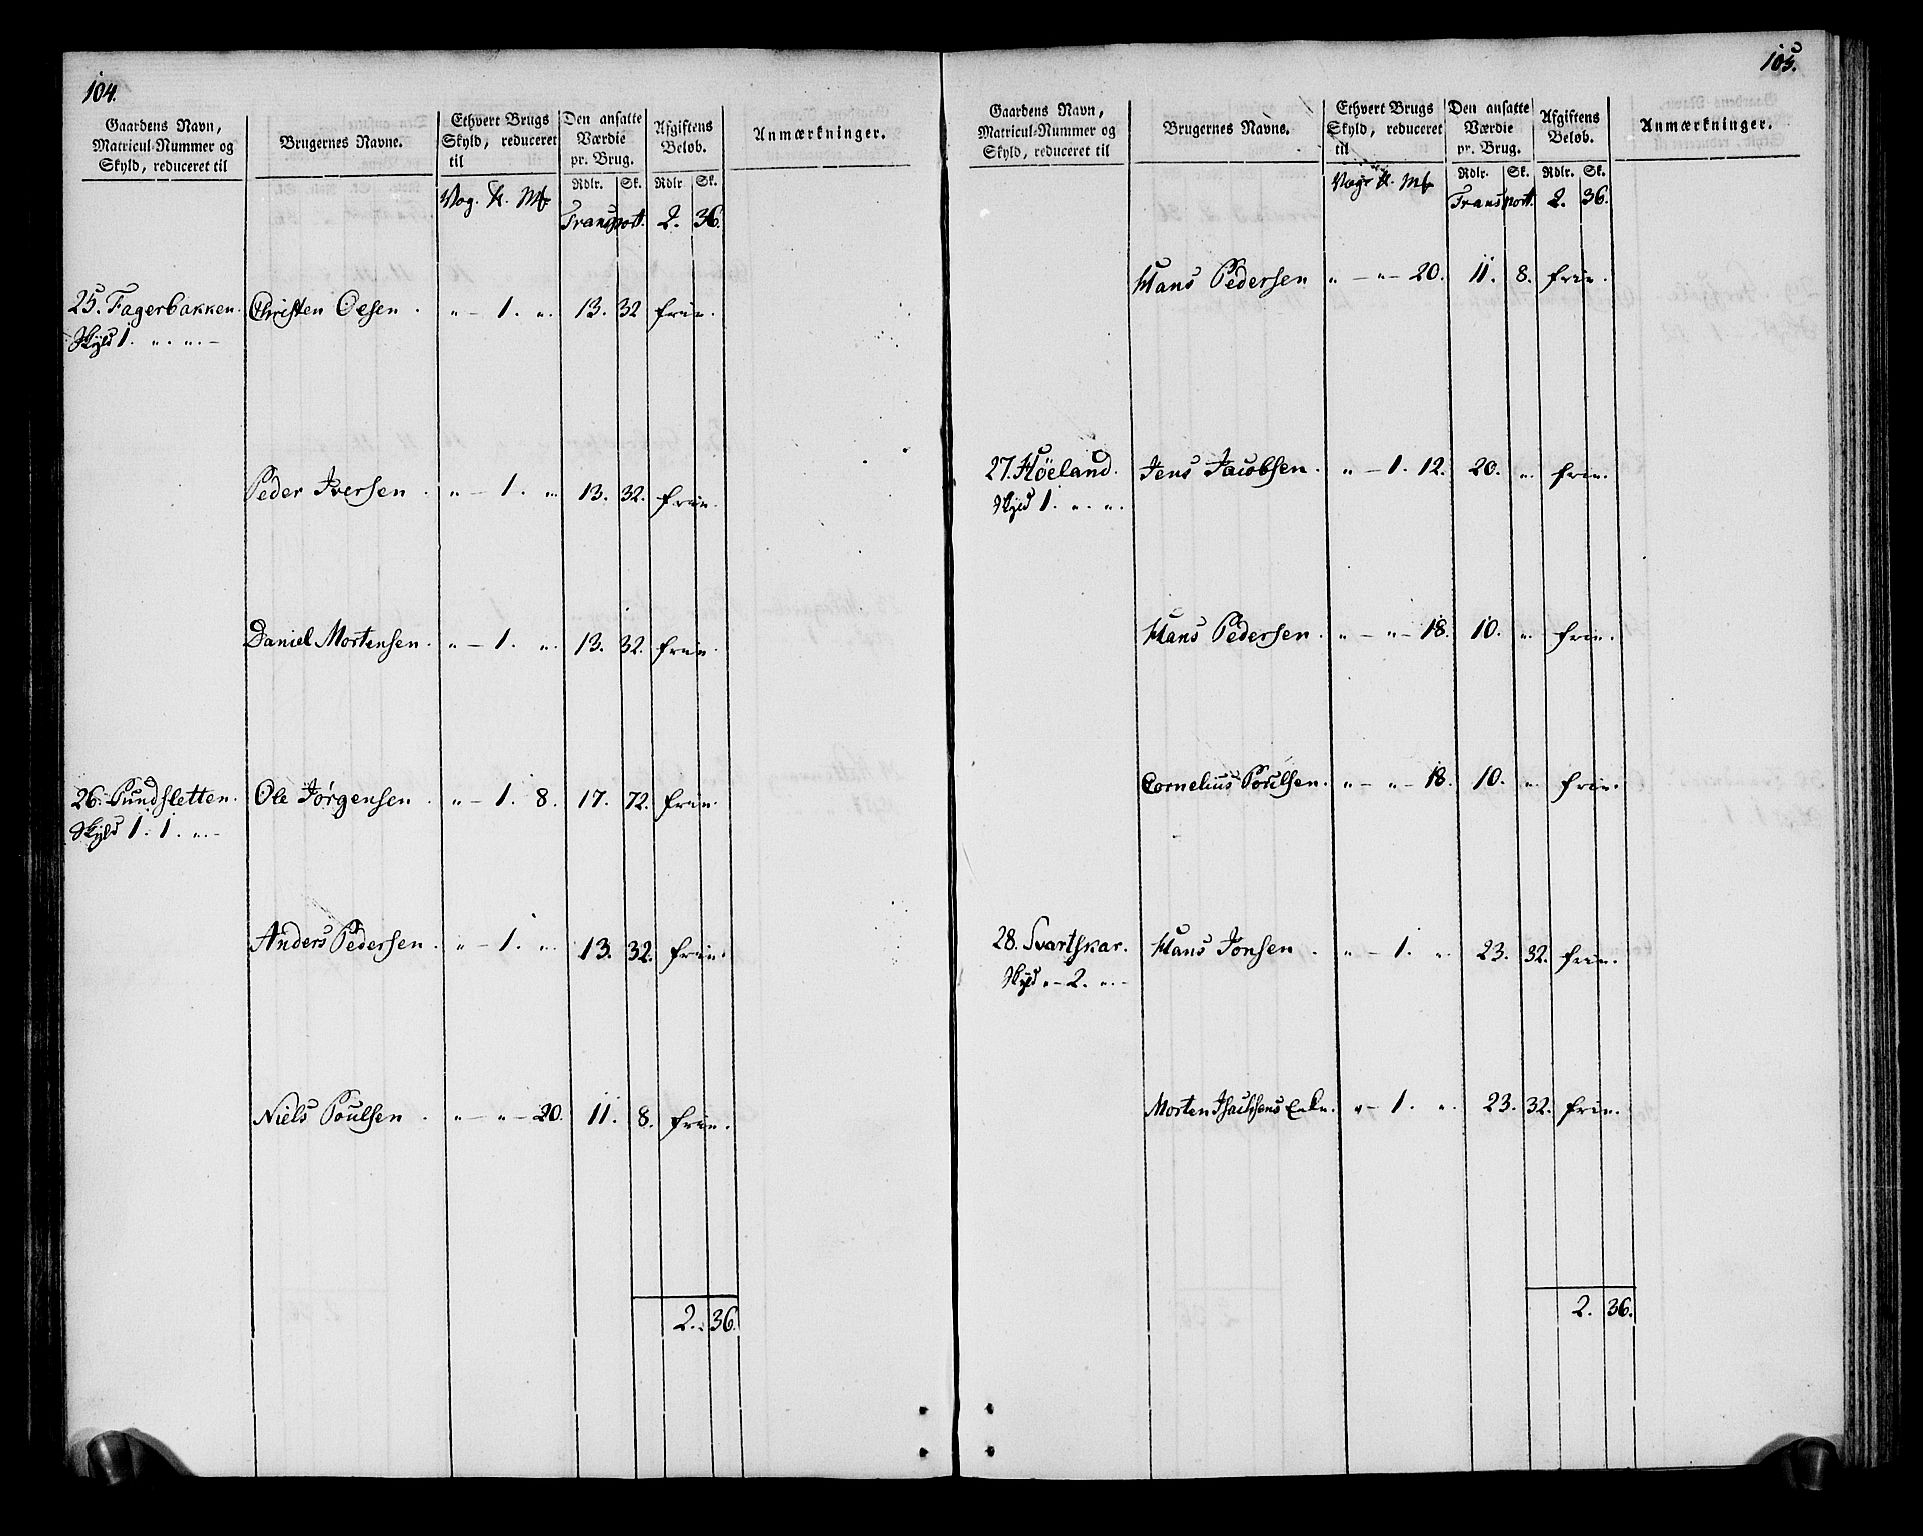 104.
Gaardens Navn, Matricul-Nummer og Skyld, reduceret til
Brugernes Navne.
Ethvert Brugs Skyld, reduceret til
Den ansatte Værdie pr. Brug.
Afgiftens Beløb.
Anmærkninger.
Rdlr. Sk. Rdlr Sk.
Vog. Mk
Transport. 2. 36.
25. Fagerbakken. Christen Olsen. " – 1. ". 13. 32 frie.
Skyld 1. ". ". –
Peder Iversen. " – 1. ". 13. 32. frie.
Daniel Mortensen. " – 1. ". 13. 32. frie.
26. Pundsletten. Ole Jørgensen. " – 1. 8. 17. 72. frie.
Skyld 1. 1. ". –
Anders Pedersen. " – 1. ". 13. 32. frie.
Niels Poulsen. " – " – 20. 11. 8. frie.
2. 36.
105.
Gaardens Navn, Matricul-Nummer og Skyld, reduceret til
Brugernes Navne.
Ethvert Brugs Skyld, reduceret til
Den ansatte Værdie pr. Brug.
Afgiftens Beløb.
Anmærkninger.
Rdlr. Sk. Rdlr. Sk.
Mk
Transport. 2. 36.
Hans Pedersen " – " – 20. 11. 8. frie.
27. Høeland. Jens Jacobsen. " – 1. 12. 20. ". frie.
Skyld 1. ". ".
Hans Pedersen. " – " – 18. 10. ". frie.
Cornelius Poulsen. " – " – 18. 10. ". frie.
28. Svartskar. Hans Jonsen. " – 1. ". 23. 32. frie.
Skyld " – 2. ". –
Morten Isachsens Enke. " – 1. ". 23. 32. frie.
2. 36.